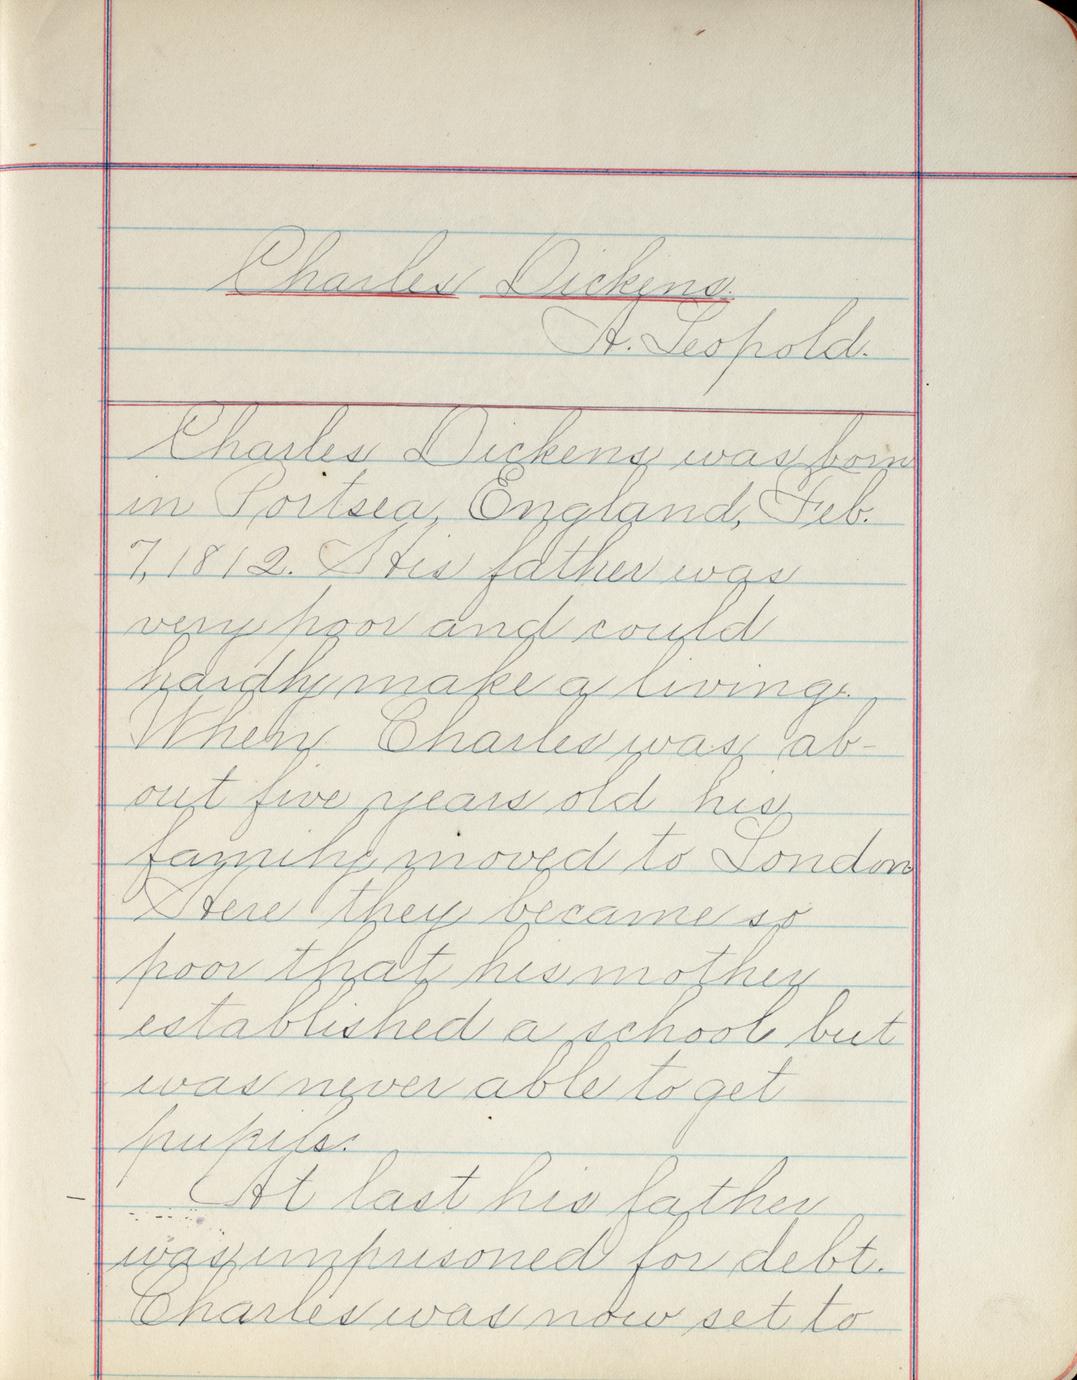 Charles Dickens.
A. Leopold.
Charles Dickens was born
in Portsea, England, Feb.
7, 1812. His father was
very poor and could
hardly make a living.
When Charles was ab-
out five years old his
family moved to London
Here they became so
poor that his mother
established a school but
was never able to get
pupils.
At last his father
was imprisoned for debt.
Charles was now set to